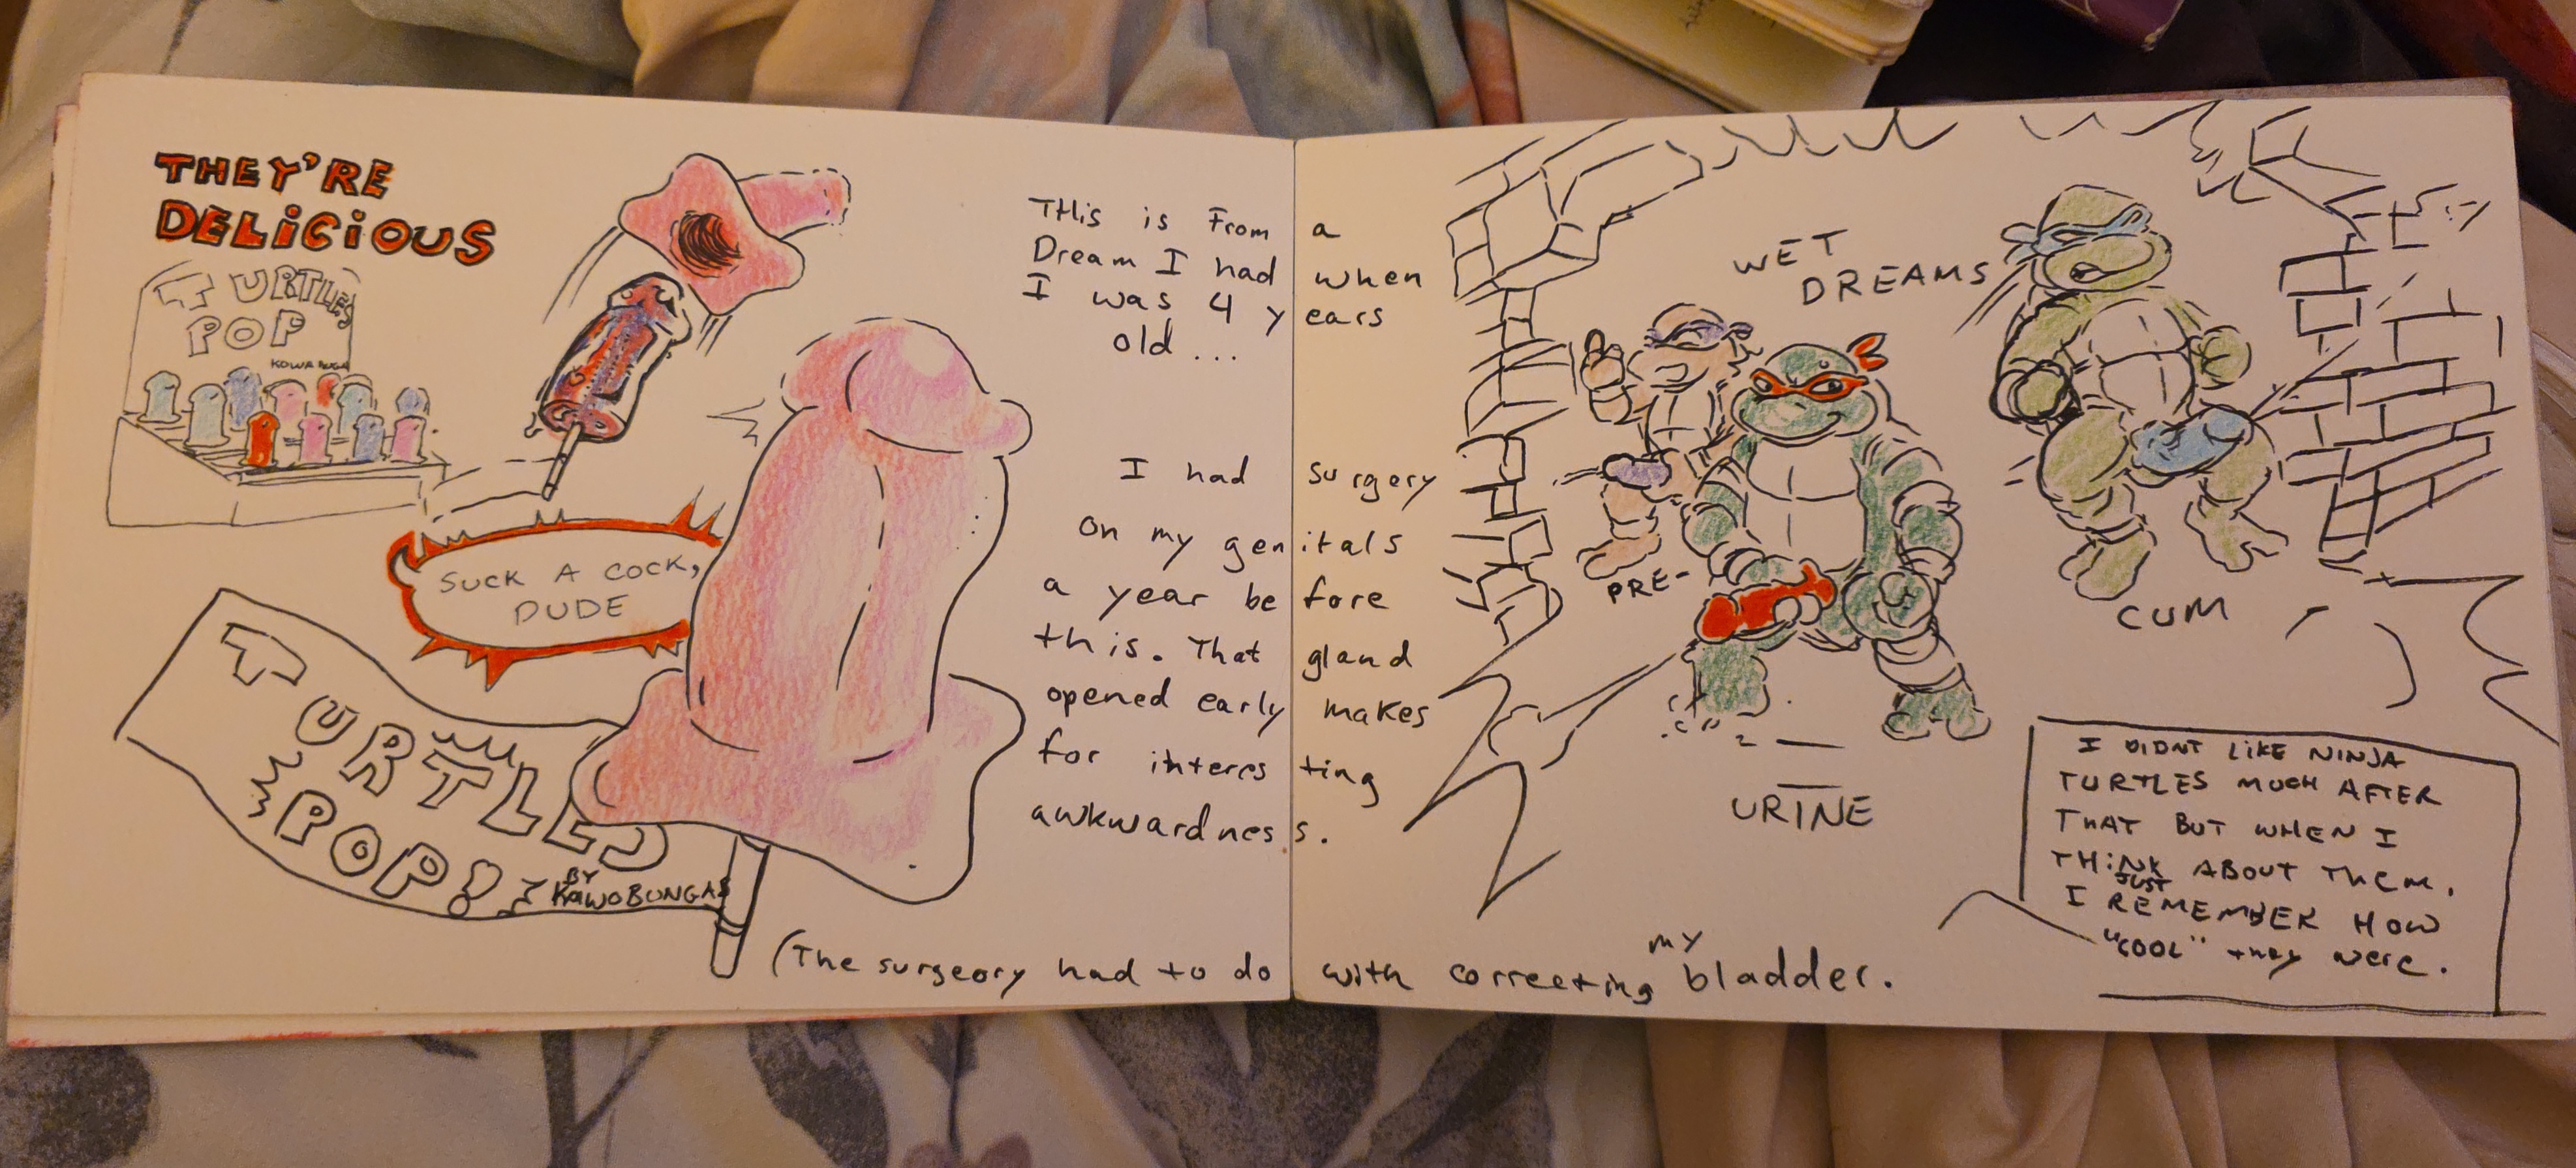 THEY'RE
DELICIOUS
TURTLES
POP
KOWABUNGA
SUCK A COCK,
DUDE
TURTLES
POP!
BY
KAWOBUNGAS
THis is From a
Dream I had when
I was 4 years
old ...
I had surgery
on my genitals
a year before
this. That gland
opened early makes
for interesting
awkwardness.
(The surgeory had to do with correcting my bladder.
WET
DREAMS
PRE-
CUM
URINE
I DIDNT LIKE NINJA
TURTLES MUCH AFTER
THAT BUT WHEN I
THiNK ABOUT THEM.
I JUST REMEMBER HOW
"COOL" they were.